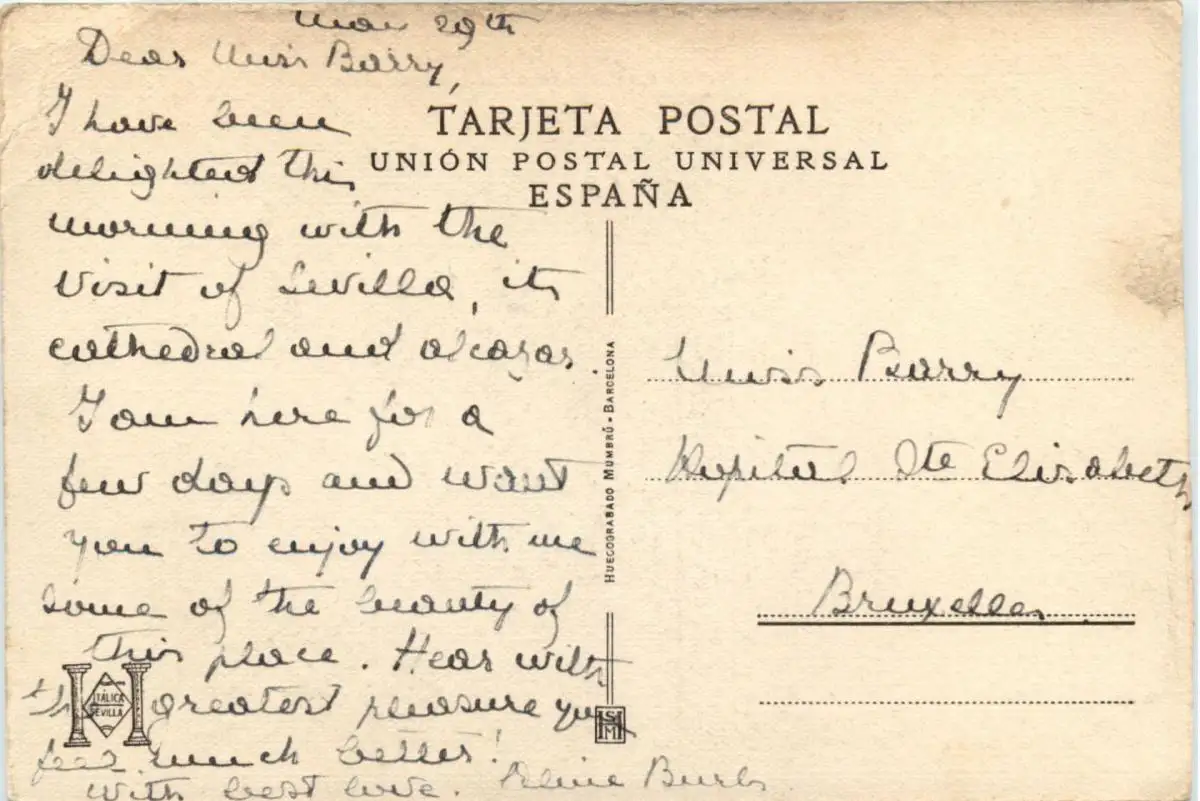 Mar 29th
Dear Miss Barry,
I have been
delighted this
morning with the
visit of Sevilla, its
cathedral and alcazar.
I am here for a
few days and want
you to enjoy with me
some of the beauty of
this place. Hear with
the greatest pleasure you
feel much better!
With best love.
TARJETA POSTAL
UNIÓN POSTAL UNIVERSAL
ESPAÑA
HUECOGRABADO MUMBRÚ - BARCELONA
Miss Barry
Hopital Ste Elisabeth
Bruxelles
ITÁLICA
SEVILLA